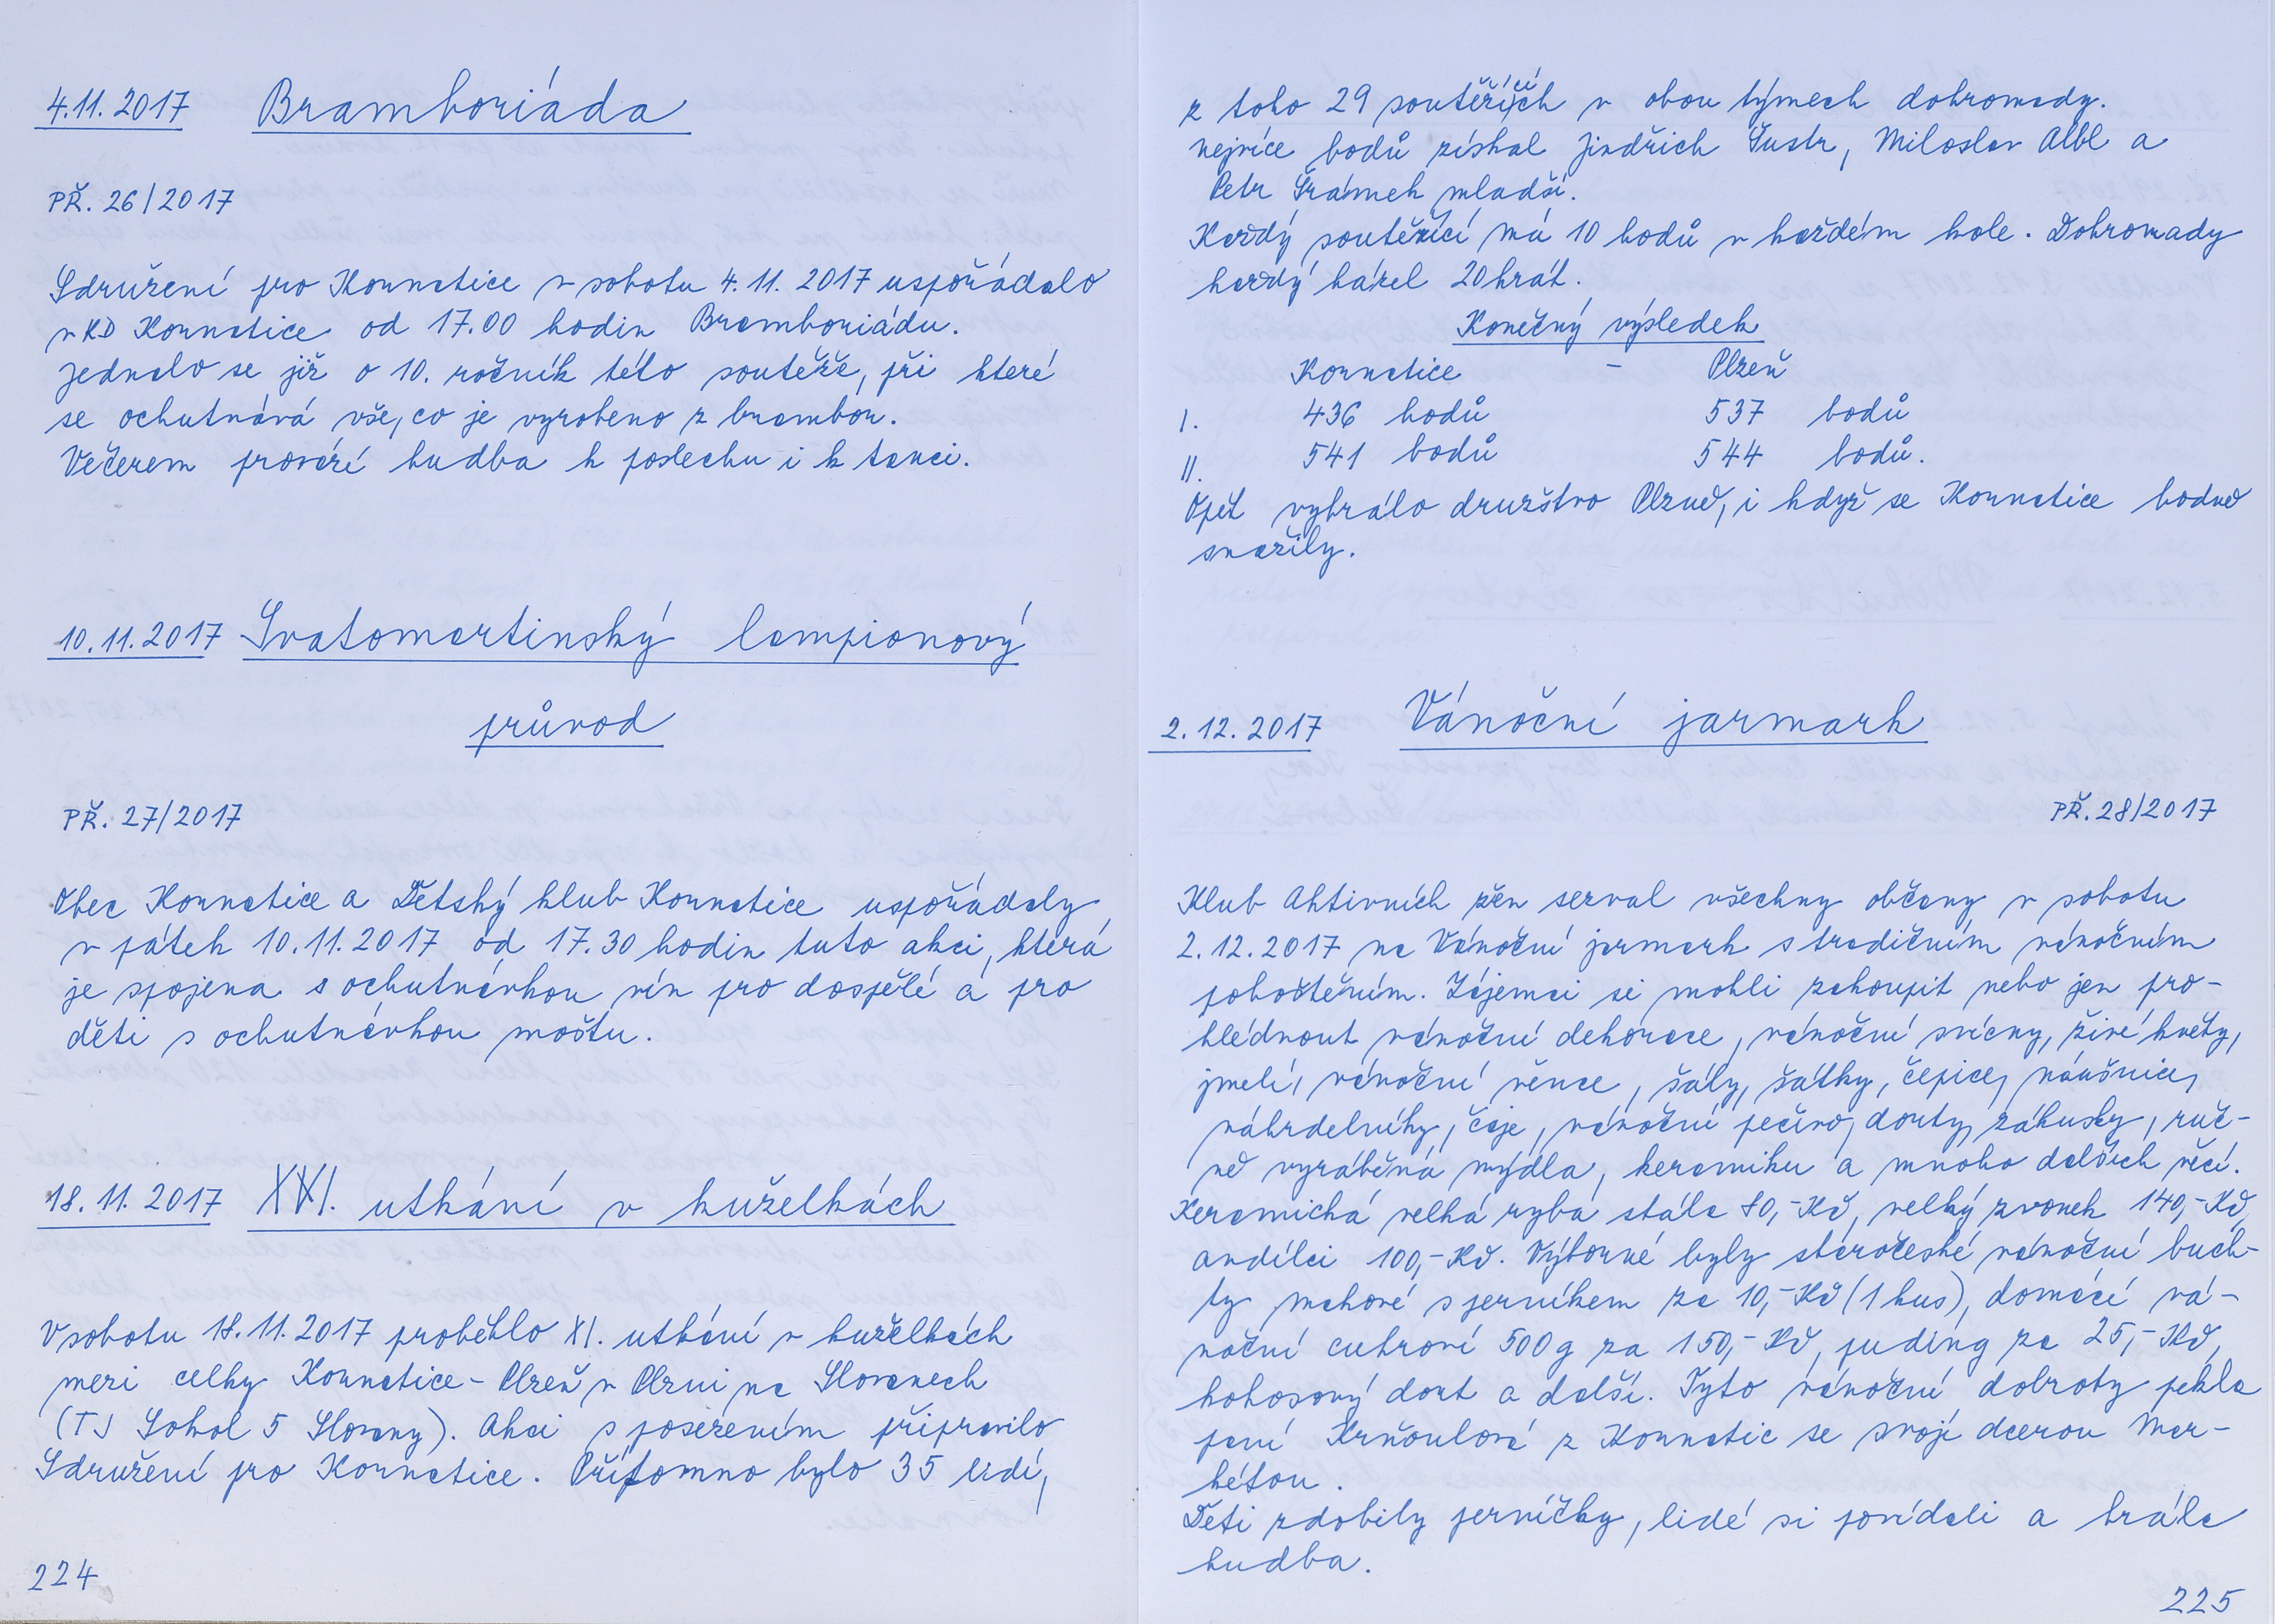 4.11.2017 Bramboriáda
PŘ. 26/2017
Sdružení pro Kornatice v sobotu 4.11.2017 uspořádalo
v KD Kornatice od 17.00 hodin Bramboriádu.
Jednalo se již o 10. ročník této soutěže, při které
se ochutnává vše, co je vyrobeno z brambor.
Večerem provází hudba k poslechu i k tanci.
10.11.2017 Svatomartinský lampionový
průvod
PŘ. 27/2017
Obec Kornatice a Dětský klub Kornatice uspořádaly
v pátek 10.11.2017 od 17.30 hodin tuto akci, která
je spojena s ochutnávkou vín pro dospělé a pro
děti s ochutnávkou moštu.
18.11.2017 XI. utkání v kuželkách
V sobotu 18.11.2017 proběhlo XI. utkání v kuželkách
mezi celky Kornatice - Plzeň v Plzni na Slovanech
(TJ Sokol 5 Slovany). Akci s posezením připravilo
Sdružení pro Kornatice. Přítomno bylo 35 lidí,
224
z toho 29 soutěžících v obou týmech dohromady.
nejvíce bodů získal Jindřich Šustr, Miloslav Albl a
Petr Šrámek mladší.
Každý soutěžící má 10 hodů v každém kole. Dohromady
každý házel 20krát.
Konečný výsledek
Kornatice - Plzeň
I. 436 bodů 537 bodů
II. 541 bodů 544 bodů.
Opět vyhrálo družstvo Plzně, i když se Kornatice hodně
snažily.
2.12.2017 Vánoční jarmark
PŘ. 28/2017
Klub Aktivních žen sezval všechny občany v sobotu
2.12.2017 na Vánoční jarmark s tradičním vánočním
pohoštěním. Zájemci si mohli zakoupit nebo jen pro-
hlédnout vánoční dekorace, vánoční svícny, živé květy,
jmelí, vánoční věnce, šály, šátky, čepice, náušnice,
náhrdelníky, čaje, vánoční pečivo, dorty, zákusky, ruč-
ně vyráběná mýdla, keramiku a mnoho dalších věcí.
Keramická velká ryba stála 80,- Kč, velký zvonek 140,- Kč,
andílci 100,- Kč. Výborné byly staročeské vánoční buch-
ty makové s perníkem za 10,- Kč (1 kus), domácí vá-
noční cukroví 500g za 150,- Kč, puding za 25,- Kč,
kokosový dort a další. Tyto vánoční dobroty pekla
paní Krňoulová z Kornatic se svojí dcerou Mar-
kétou.
Děti zdobily perníčky, lidé si povídali a hrála
hudba.
225